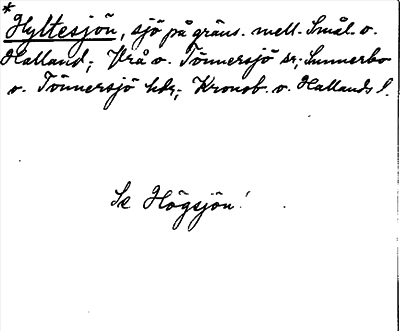 *
Hyltesjön, sjö på gräns. mell. Smål. o.
Halland; Vrå o. Tönnersjö sr; Sunnerbo
o. Tönnersjö hdr; Kronob. o. Hallands l.
Se Högsjön!